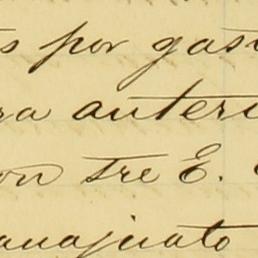 s por gast
ra anteri
on tre E.
anajuato